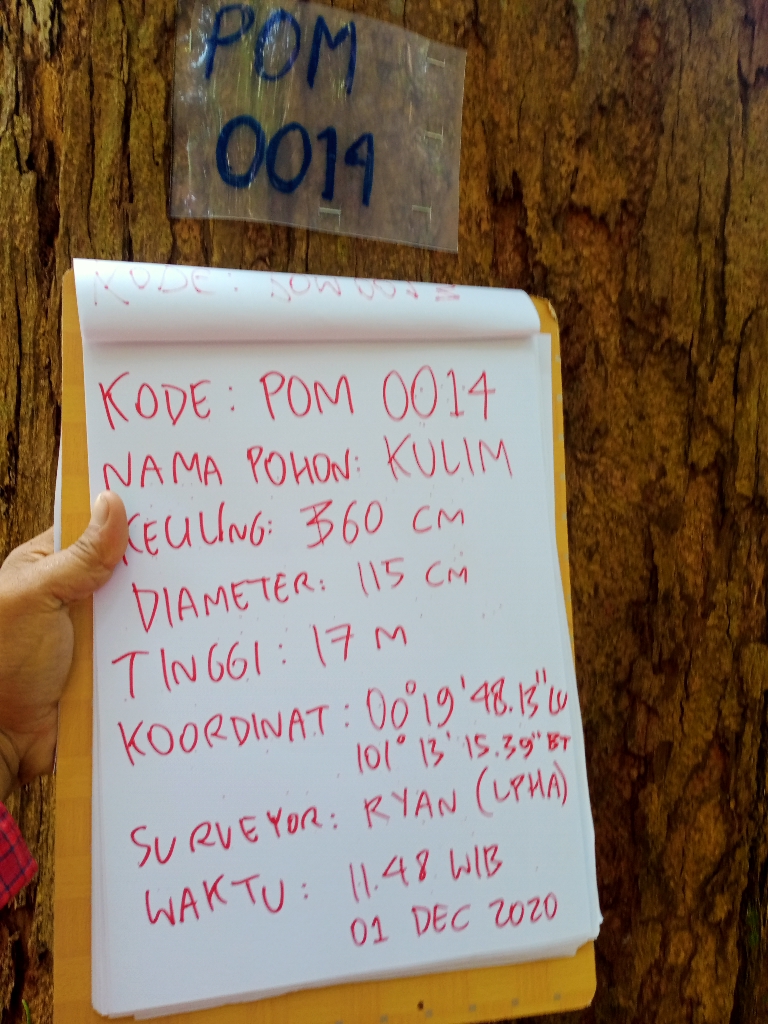 POM
0014
KODE:
KODE: POM 0014
NAMA POHON: KULIM
KELILING: 360 CM
DIAMETER: 115 CM
TINGGI: 17 M
KOORDINAT: 00° 19' 48.13" LU
101° 13' 15.39" BT
SURVEYOR: RYAN (LPHA)
WAKTU: 11.48 WIB
01 DEC 2020